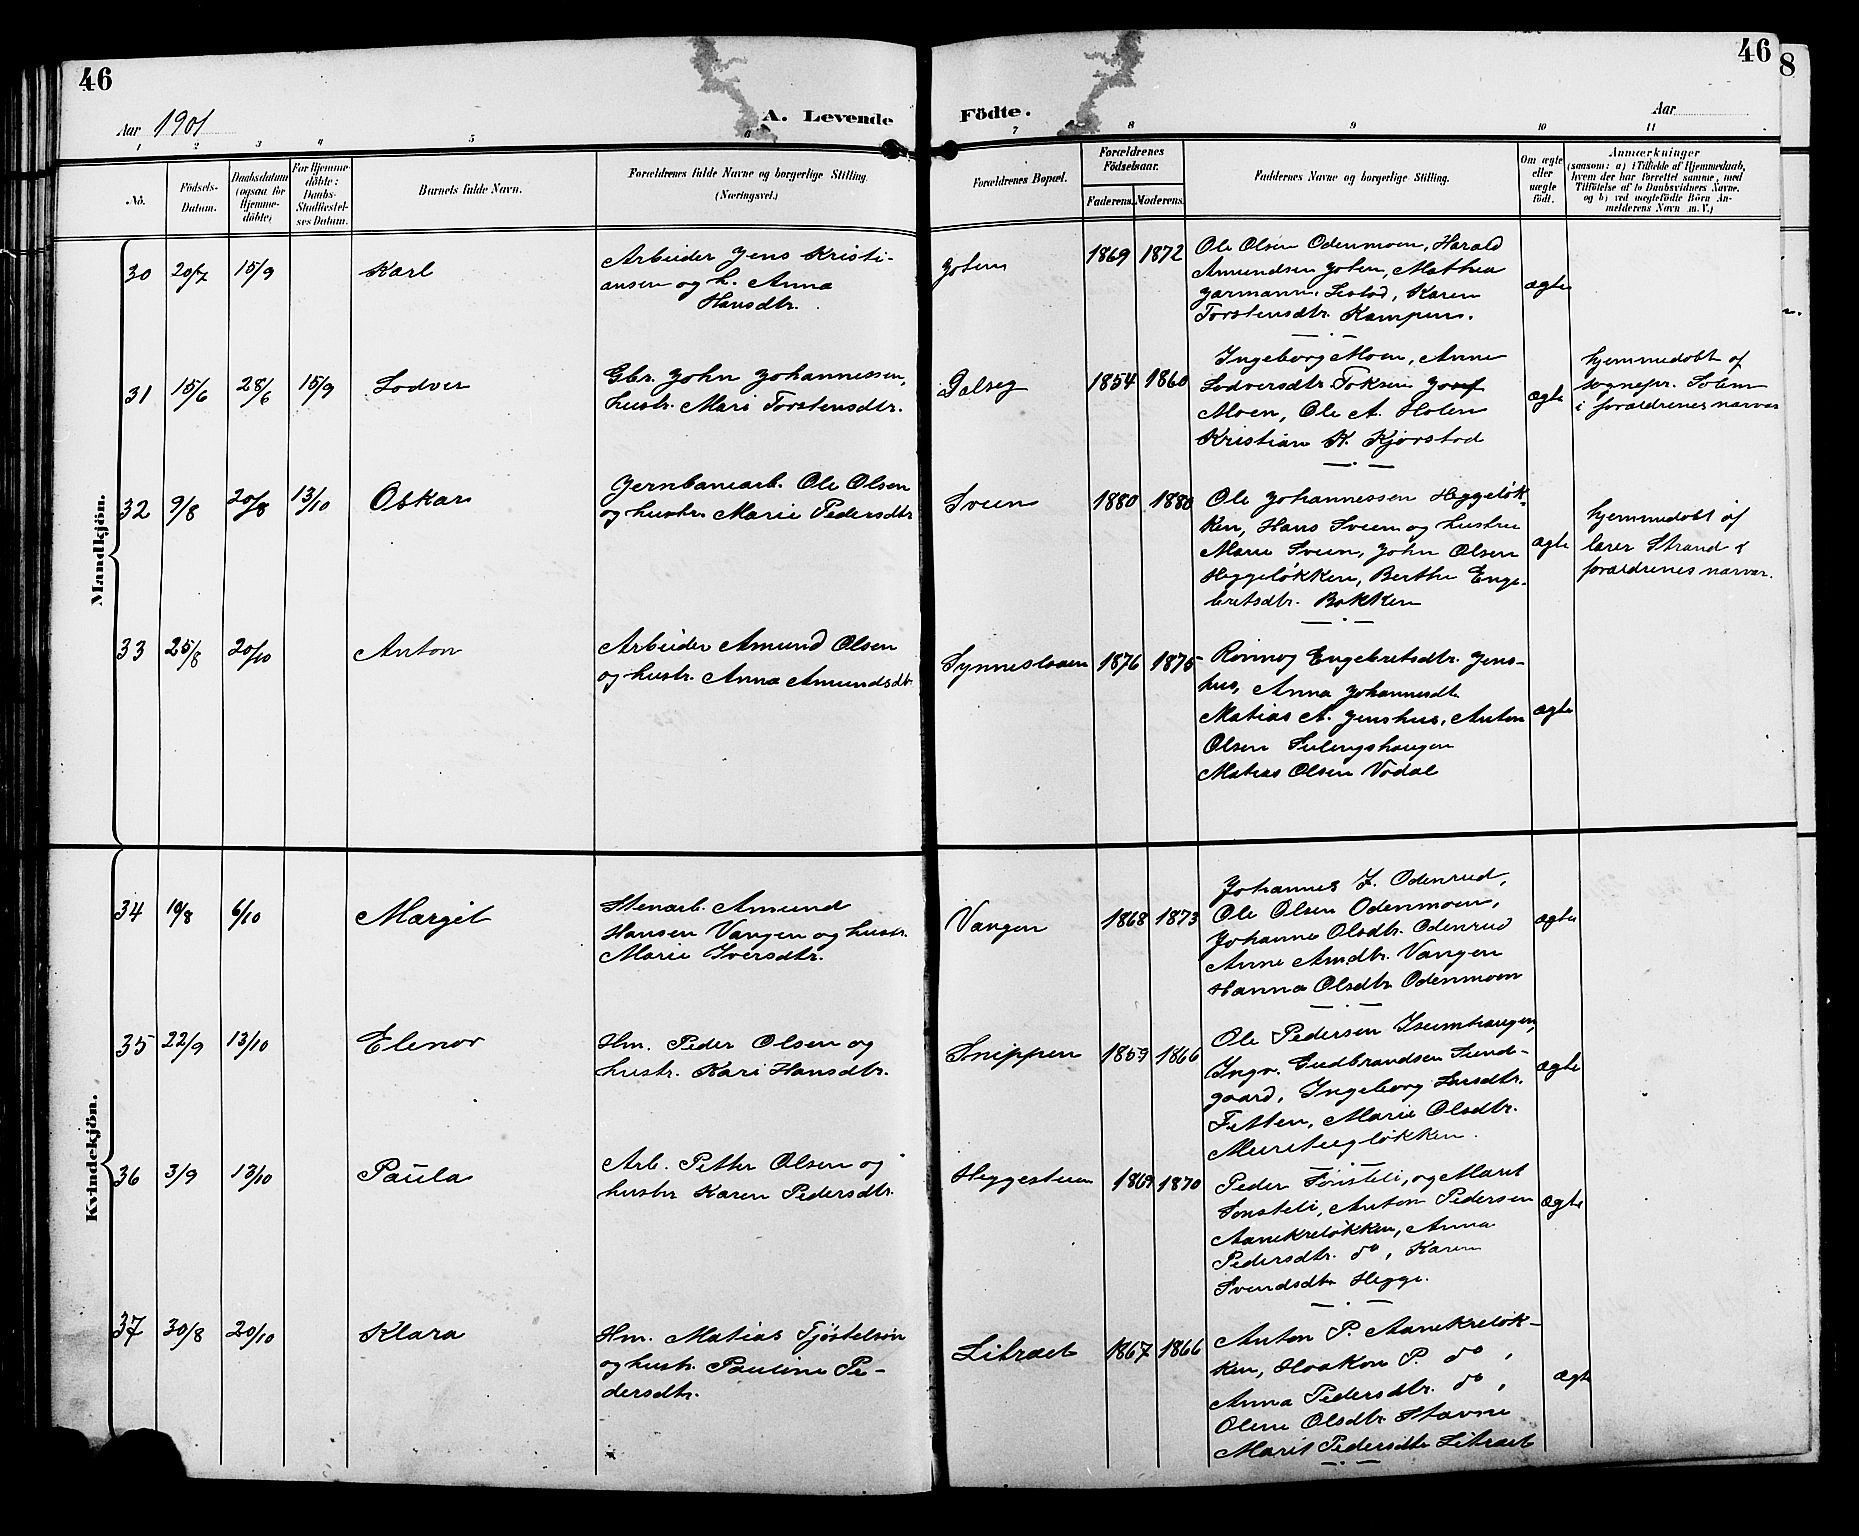 46
46
8
Aar 1901
A. Levende
Födte.
Aar
1 2 3 4 5 6 7 8 9 10 11
No.
Födsels-
Datum.
Daabsdatum
(ogsaa for
Hjemme-
döbte)
For Hjemme-
döbte:
Daabs-
Stadfæstel-
ses Datum.
Barnets fulde Navn.
Forældrenes fulde Navne og borgerlige Stilling
(Næringsvei.)
Forældrenes Bopæl.
Forældrenes
Födselsaar.
Faderens.
Moderens.
Faddernes Navne og borgerlige Stilling.
Om ægte
eller
uægte
födt.
Anmærkninger
(saasom: a) i Tilfælde af Hjemmedaab,
hvem der har forrettet samme, med
Tilföielse af to Daabsvidners Navne,
og b) ved uægtefödte Börn An-
melderens Navn m. V.)
Mandkjön.
30 20/7 15/9
Karl
Arbeider Jens Kristi-
ansen og h. Anna
Hansdtr.
Joten
1869 1872
Ole Olsen Odenmoen, Harald
Amundsen Joten, Mathea
Garmann, Listad, Karen
Torstensdtr. Kampen.
ægte
31 15/6 28/6 15/9
Lodver
Gbr. John Johannessen,
hustr. Mari Torstensdtr.
Dalseg
1854 1860
Ingeborg Moen, Anne
Lodversdtr. Foksen Josef
Moen, Ole A. Holen
Kristian K. Kjörstad
ægte
hjemmedobt af
sognepr. Solem
i forældrenes nærvær
32 9/8 20/8 13/10
Oskar
Jernbanearb. Ole Olsen
og hustr. Marie Pedersdtr
Sveen
1880 1880
Ole Johannessen Heggeløk-
ken, Hans Sveen og hustru
Marie Sveen, John Olsen
Heggeløkken, Berthe Enge-
bretsdtr. Bakken
ægte
hjemmedobt af
lærer Strand i
forældrenes nærvær.
33 25/8 20/10
Anton
Arbeider Amund Olsen
og hustr. Anna Amundsdtr
1876 1875
Rønnog Engebretsdtr. Jens-
hus, Anna Johannesdtr
Matias A. Jenshus, Anton
Olsen
Matias Olsen Vadal
ægte
Kvindekjön.
34 19/8 6/10
Margit
Stenarb. Amund
Hansen Vangen og hustr.
Marie Iversdtr.
Vangen
1868 1873
Johannes J. Odenrud,
Ole Olsen Odenmoen,
Johanne Olsdtr. Odenrud
Anne Amdtr. Vangen
Hanna Olsdtr Odenmoen
ægte
35 22/9 13/10
Elenor
Hm. Peder Olsen og
hustr. Kari Hansdtr.
Snippen
1859 1866
Ole Pedersen Isumhaugen,
Ingv. Gudbrandsen Sund-
gaard, Ingeborg Larsdtr.
Fetten, Marie Olsdtr.
ægte
36 3/9 13/10
Paula
Arb. Petter Olsen og
hustr Karen Pedersdtr.
Heggestuen
1869 1870
Peder Fonsteli, og Marit
Fonsteli, Anton Pedersen
Aanekreløkken, Anna
Pedersdtr. do, Karen
Svendsdtr Hegge.
ægte
37 30/8 20/10
Klara
Hm. Matias Tjøstelsøn
og hustr. Pauline Pe-
dersdtr.
Litræet
1867 1866
Anton P. Aanekreløk-
ken, Haakon P. do,
Anna Pedersdtr. do,
Oline Olsdtr. Stavne
Marit Pedersdtr Litræet
ægte